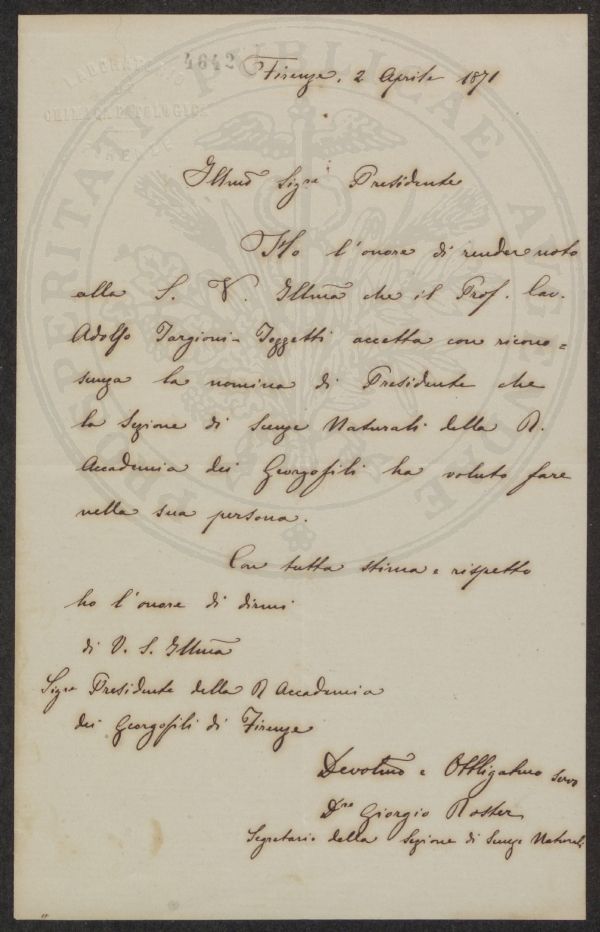 4642
Firenze, 2 Aprile 1871
Illmo Sigre Presidente
Ho l'onore di render noto
alla S. V. Illma che il Prof. Cav.
Adolfo Targioni-Tozzetti accetta con ricono=
scenza la nomina di Presidente che
la Sezione di Scienze Naturali della R.
Accademia dei Georgofili ha voluto fare
nella sua persona.
Con tutta stima e rispetto
ho l'onore di dirmi
di V. S. Illma
Sigre Presidente della R Accademia
dei Georgofili di Firenze
Devotmo e Obbligatmo servo
Dre Giorgio Roster
Segretario della Sezione di Scienze Naturali
PROSPERITATI PUBLICAE AUGENDAE